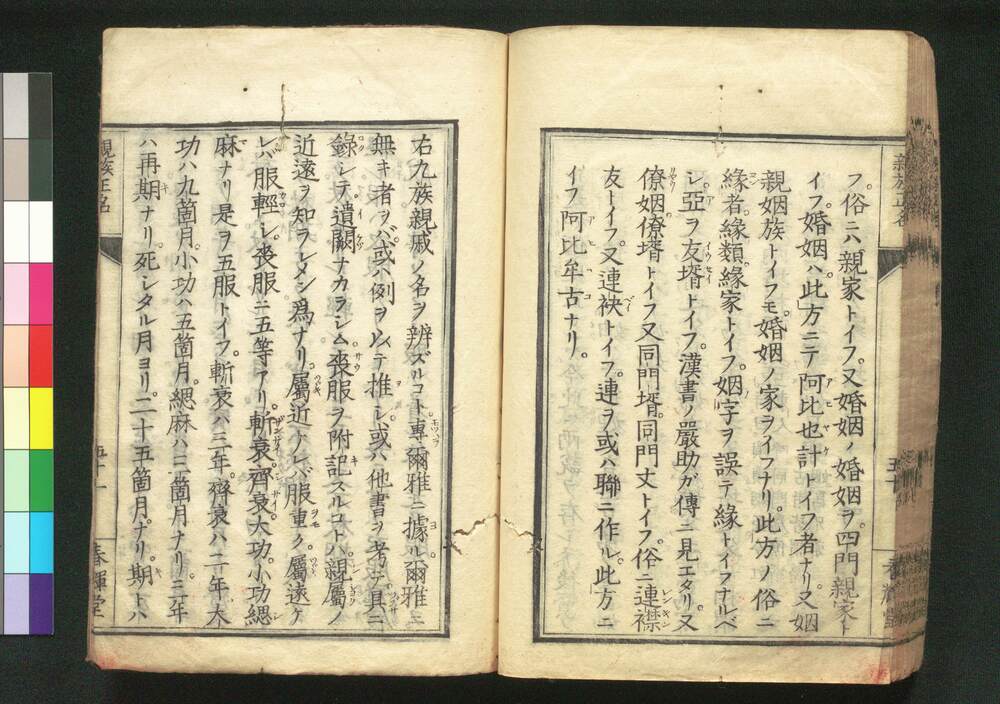 フ。俗ニハ親家トイフ。又婚姻ノ婚姻ヲ。四門親家ト
イフ。婚姻ハ。此方ニテ阿比也計トイフ者ナリ。又姻
親姻族トイフモ。婚姻ノ家ヲイフナリ。此方ノ俗ニ
緣者緣類緣家トイフ。姻字ヲ誤テ緣トイフナルベ
シ。亞ヲ友壻トイフ。漢書ノ嚴助ガ傳ニ見エタリ。又
僚姻僚壻トイフ又同門壻。同門丈トイフ。俗ニ連襟
友トイフ。又連袂トイフ。連ヲ或ハ聯ニ作ル。此方ニ
イフ阿比牟古ナリ。
親族正名
右九族親戚ノ名ヲ辨ズルコト。專爾雅ニ據ル。爾雅ニ
無キ者ヲバ。或ハ例ヲ以テ推シ。或ハ他書ヲ考テ。具ニ
錄シテ遺闕ナカラシム。喪服ヲ附記スルコトハ。親屬ノ
近遠ヲ知ラシメン爲ナリ。屬近ケレバ服重ク。屬遠ケ
レバ服輕シ。喪服ニ五等アリ。斬衰。齊衰。大功。小功。緦
麻ナリ。是ヲ五服トイフ。斬衰ハ三年。齊衰ハ二年。大
功ハ九箇月。小功ハ五箇月。緦麻ハ三箇月ナリ。三年
ハ再期ナリ。死シタル月ヨリ。二十五箇月ナリ。期トハ
親族正名
五十一
春輝堂